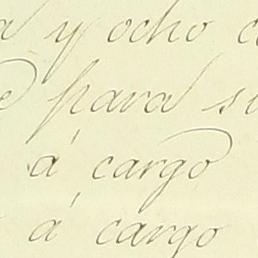 y ocho
para
á cargo
á cargo